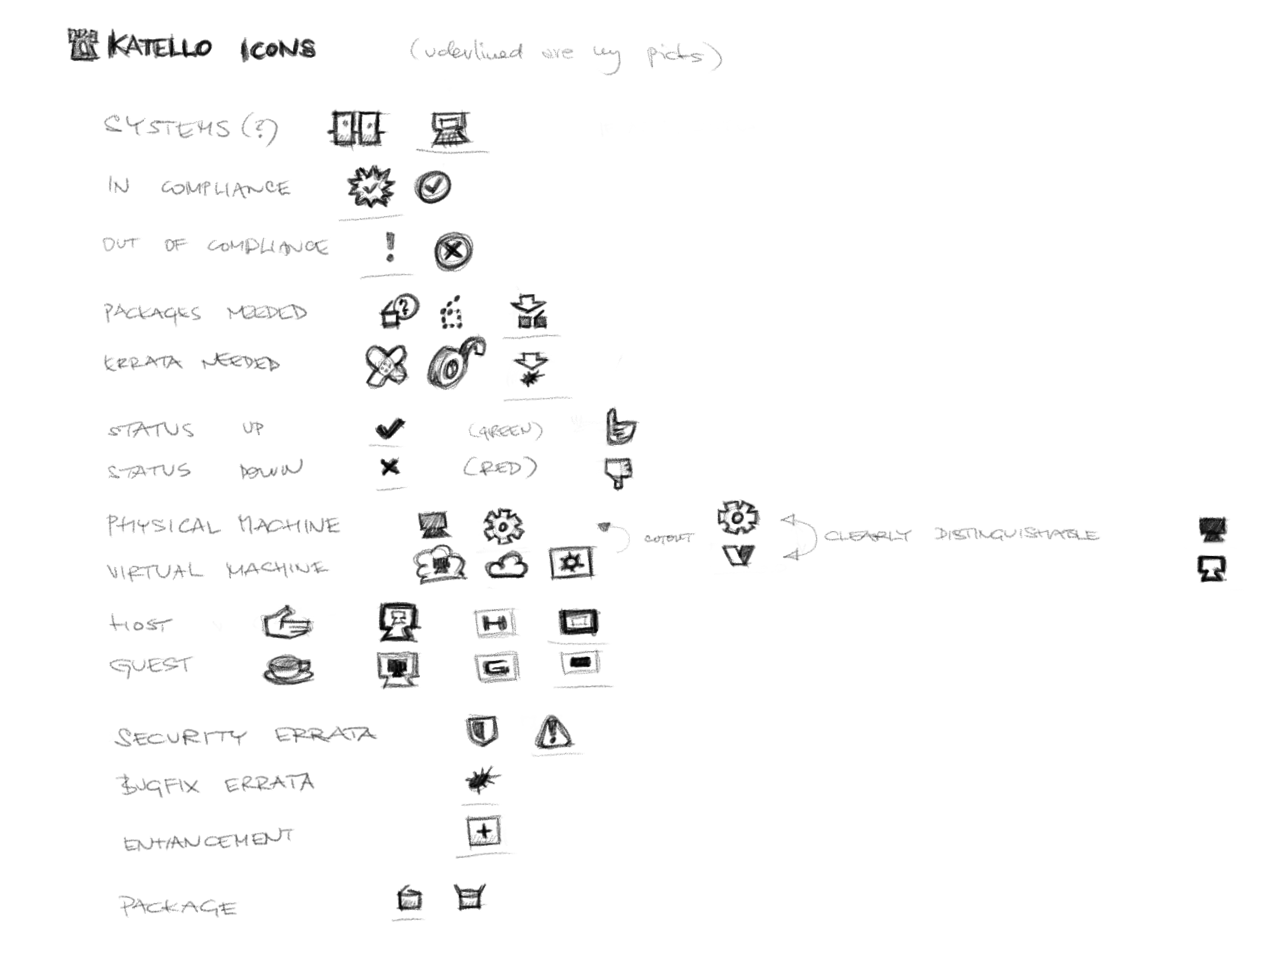 KATELLO ICONS (underlined are my picks)
SYSTEMS (?)
IN COMPLIANCE
OUT OF COMPLIANCE !
PACKAGES NEEDED ?
ERRATA NEEDED
STATUS UP (GREEN)
STATUS DOWN (RED)
PHYSICAL MACHINE CUTOUT CLEARLY DISTINGUISHABLE
VIRTUAL MACHINE
HOST H
GUEST G
SECURITY ERRATA !
BUGFIX ERRATA
ENHANCEMENT +
PACKAGE